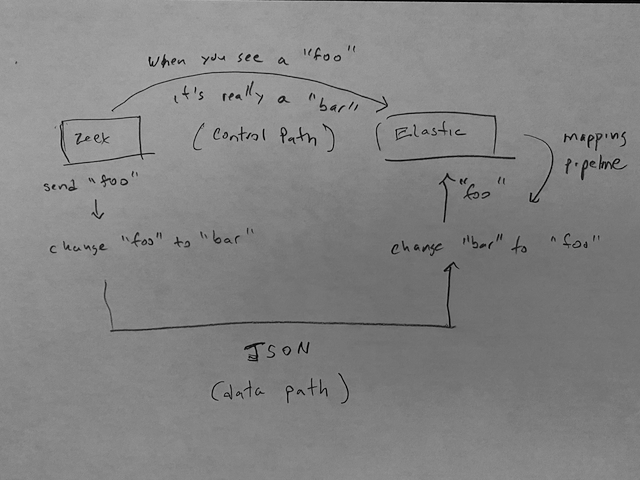 When you see a "foo"
it's really a "bar"
Zeek
(Control Path)
Elastic
mapping
pipeline
send "foo"
"foo"
change "foo" to "bar"
change "bar" to "foo"
JSON
(data path)